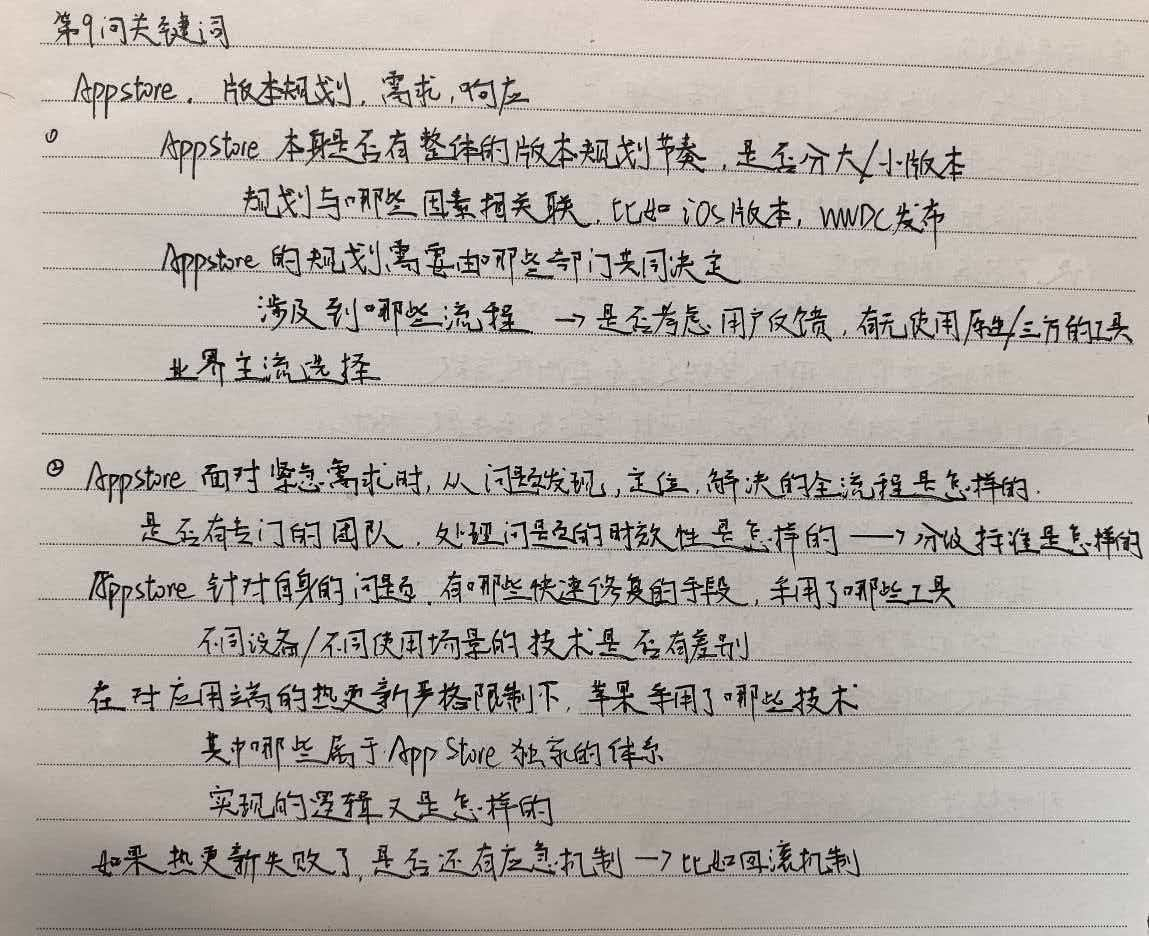 第9问关键词
Appstore. 版本规划, 需求, 响应
① AppStore 本身是否有整体的版本规划节奏, 是否分大/小版本
规划与哪些因素相关联, 比如 iOS版本, WWDC发布
Appstore 的规划需要由哪些部门共同决定
涉及到哪些流程 → 是否考虑用户反馈, 有无使用原生/三方的工具
业界主流选择
② Appstore 面对紧急需求时, 从问题发现, 定位, 解决的全流程是怎样的.
是否有专门的团队, 处理问题的时效性是怎样的 → 分级标准是怎样的
Appstore 针对自身的问题, 有哪些快速修复的手段, 采用了哪些工具
不同设备/不同使用场景的技术是否有差别
在对应用端的热更新严格限制下, 苹果采用了哪些技术
其中哪些属于 App Store 独家的体系
实现的逻辑又是怎样的
如果热更新失败了, 是否还有应急机制 → 比如回滚机制